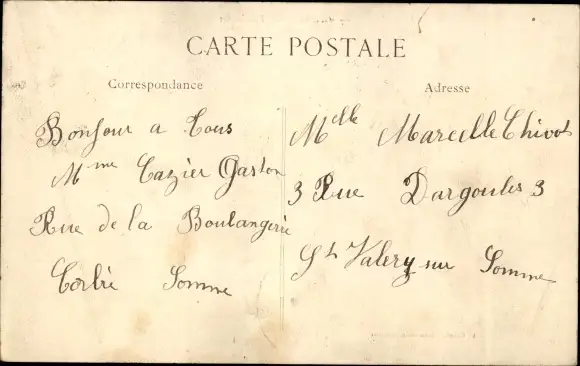 CARTE POSTALE
Correspondance
Bonjour a Tous
Mme Cazier Gaston
Rue de la Boulangerie
Corbie Somme
Adresse
Melle Marcelle Chivot
3 Rue Dargoules 3
St Valery sur Somme